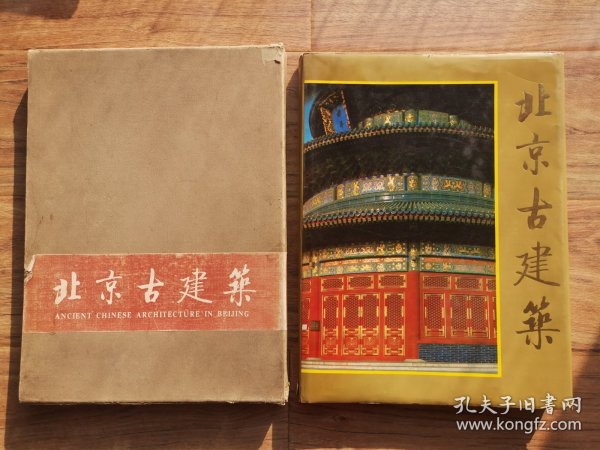 北京古建築
ANCIENT CHINESE ARCHITECTURE IN BEIJING
北京古建築
孔夫子旧书网
www.kongfz.com